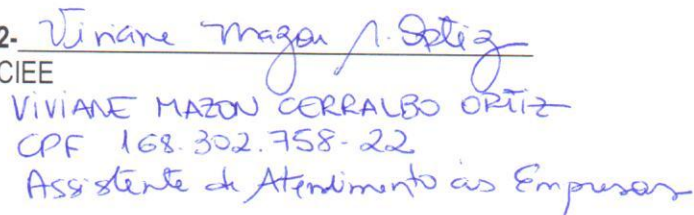 2- Viviane Mazon S. Ortiz
CIEE
VIVIANE MAZON CERRALBO ORTIZ
CPF 168.302.758-22
Assistente de Atendimento às Empresas